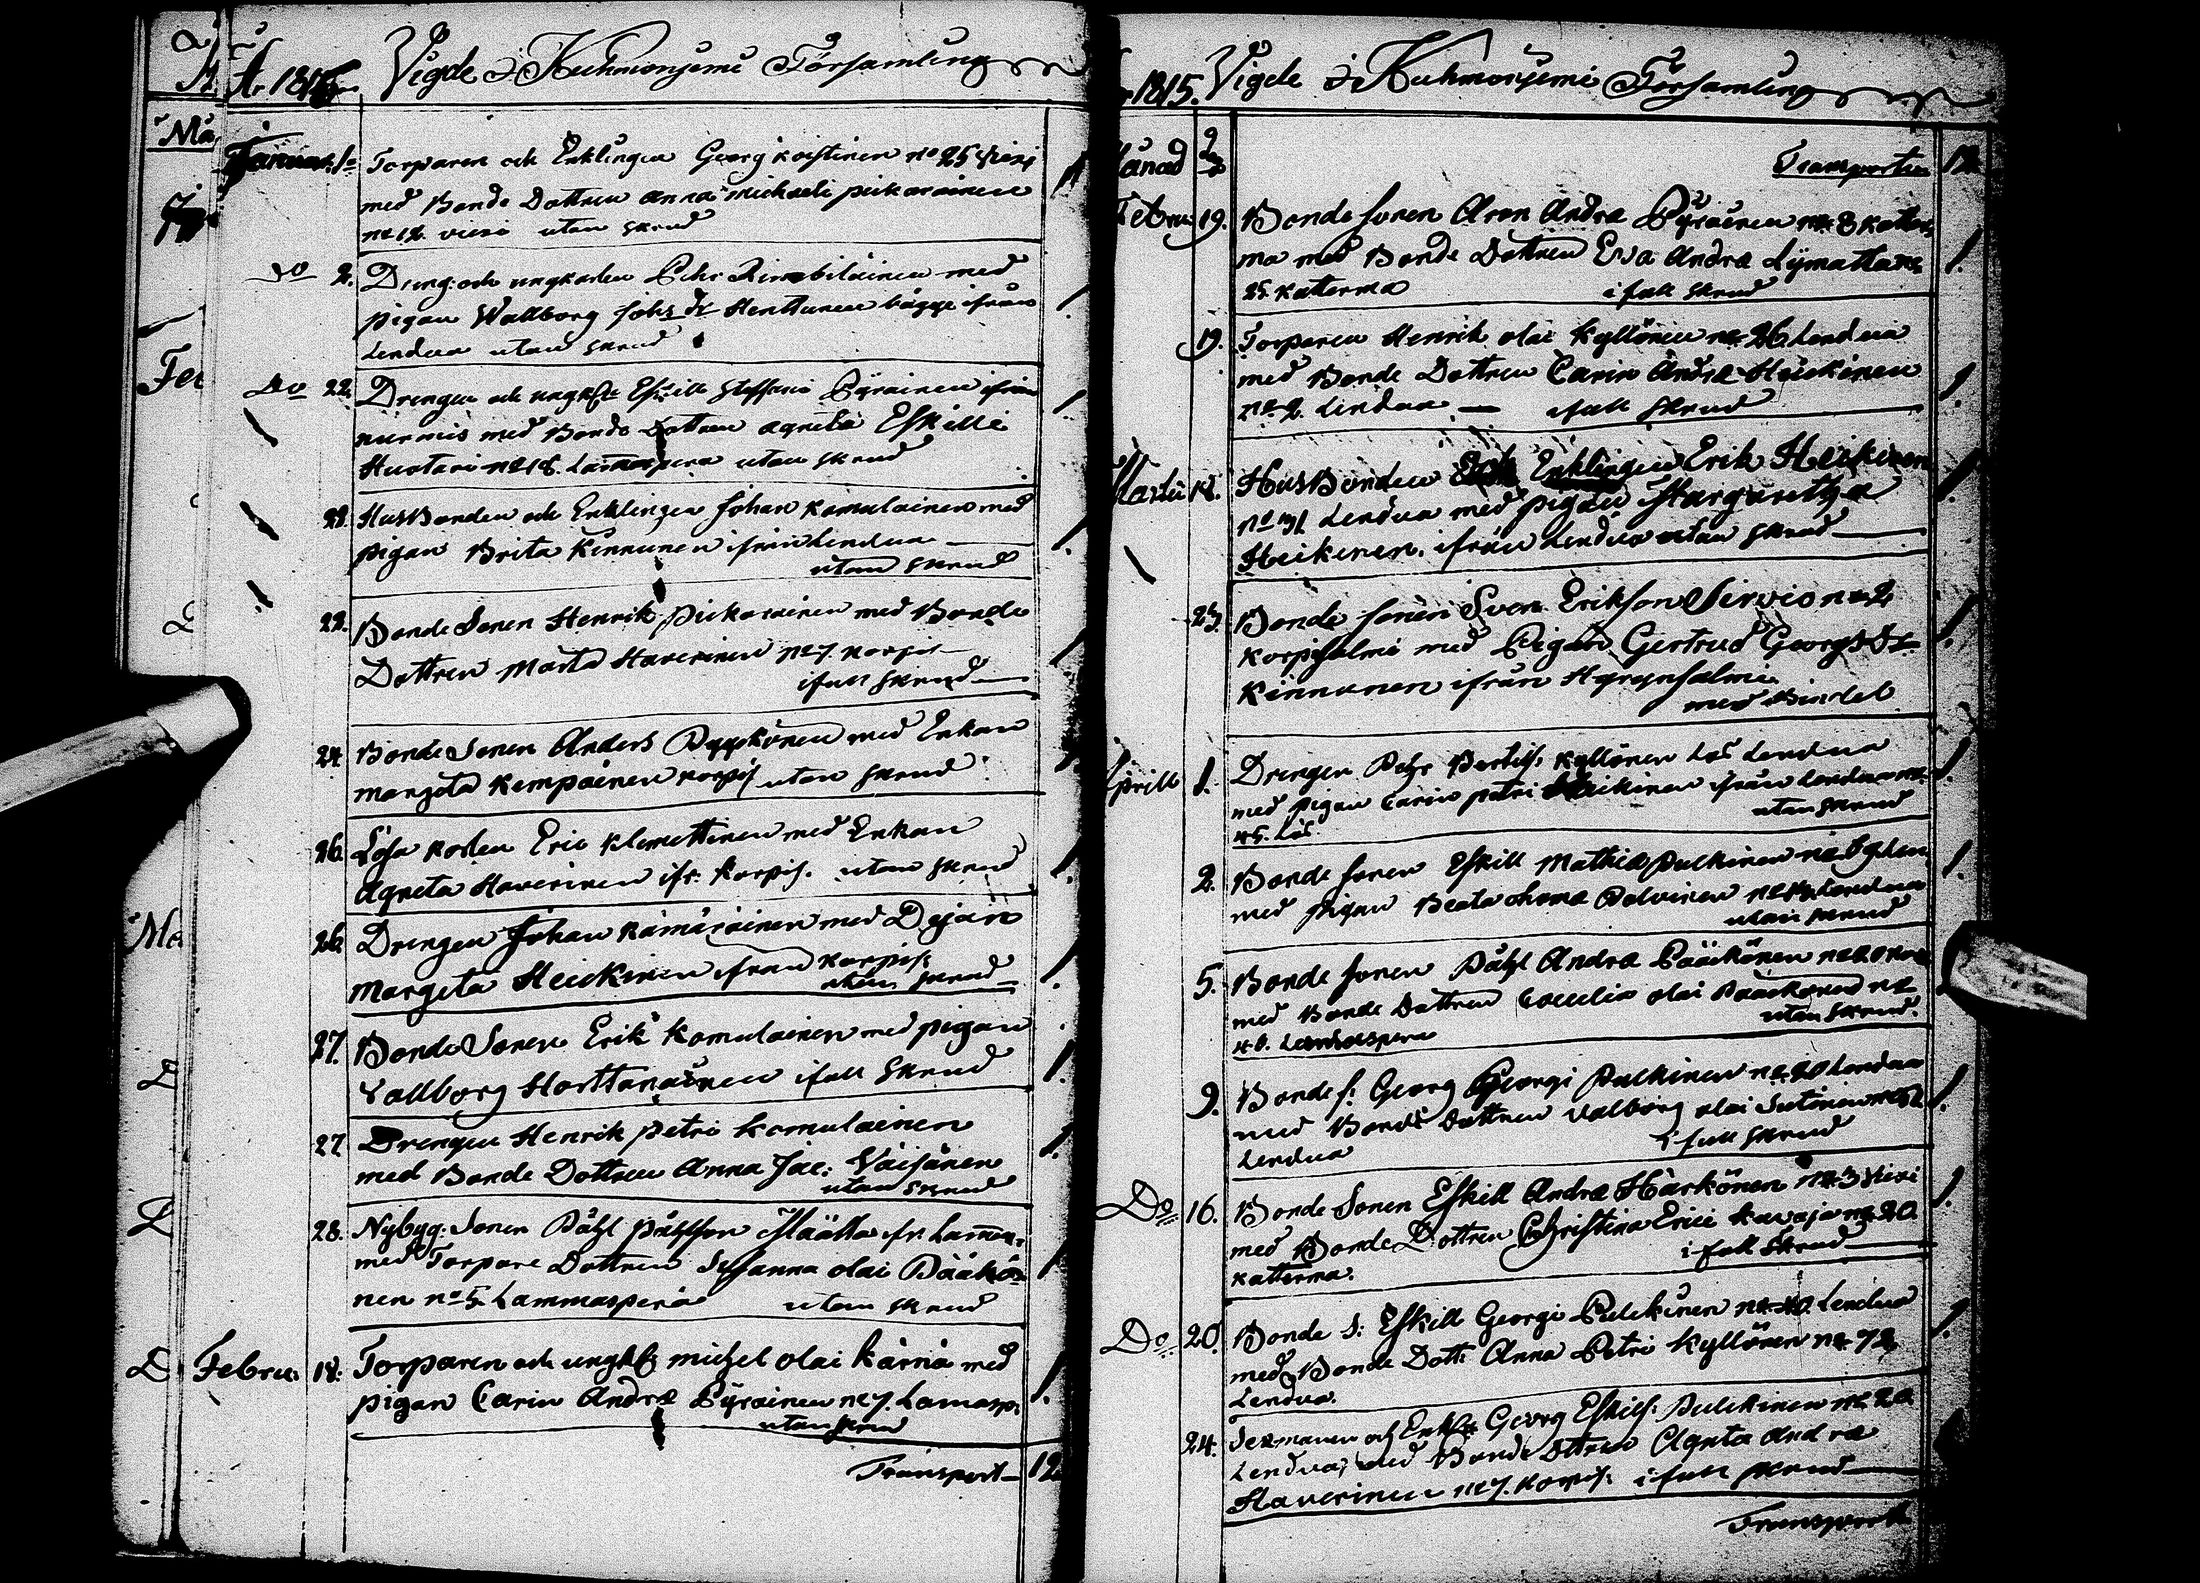 Ar 1815 Vigde i Kuhmoniemi Församling
Januari 1 Torparen och Enklingen Georg Koistinen No 25 Viexi
med Bonde Dottren Anna Michaeli Pickarainen
No 12 viexi utan skrud
do 2. Dreng och ungkarlen Pehr Rimobiläinen med
pigan Wallborg Johs Dr Henttunen bägge ifrån
Lendua utan skrud
Do 22. Drengen och ungk Eskill Steffani Pyräinen ifrån
nurmis med Bonde Dottren Agneta Eskilli
Huotari No 18 Lamaspera utan skrud
22. Husbonden och Enklingen Johan Komulainen med
pigan Brita Kinnunen ifrån Lendua
utan skrud
23. Bonde Sonen Henrik Pickarainen med Bonde
Dottren Marta Haverinen No 7 Korpis
i full skrud
24. Bonde Sonen Anders Pyykönen med Enkan
Margeta Kempainen Korpis utan skrud
26. Lösa Karlen Eric Klemettinen med Enkan
Agneta Haverinen ifr. Korpis. utan skrud
26. Drengen Johan Kämäräinen med Dejan
Margeta Heickinen ifrån Korpis
utan skrud
27. Bonde Sonen Erik Komulainen med pigan
Vallborg Horttanainen i full skrud
27. Drengen Henrik Petri Komulainen
med Bonde Dottren Anna Jac: Väisänen
utan skrud
28. Nybyg. Sonen Påhl Pålsson Määtta ifr. Lamas
med Torpare Dottren Susanna Olai Pääkö
nen No 5 Lammasperä utan skrud
Febru. 18. Torparen och ungk Michel Olai Kärnä med
pigan Carin Andræ Pyräinen No 7. Lamasp.
utan skrud
Transport 12
1815. Vigde i Kuhmoniemi Församling
Månad Transporten 12
Febru 19. Bonde sonen Aron Andræ Pyräinen No 8 Katter
ma med Bonde Dottren Eva Andræ Lymatta No
25 Katterma i full skrud
19. Torparen Henrik Olai Kyllönen No 26 Lendua
med Bonde Dottren Carin Andræ Heickinen
No 2. Lendua i full skrud
Martii 12. Husbonden och Enklingen Erik Heikinen
No 31 Lendua med pigan Margaretha
Heikinen. ifrån Lendua utan skrud
25. Bonde sonen Sven Erikson Sirvio No 2
Korpisalmi med Pigan Gertrud Georgs Dr
Kinnunen ifrån Hyrynsalmi
med Bindel
Aprill 1. Drengen Pehr Bertils. Kyllönen Lös Lendua
med pigan Carin Petri Heickinen ifrån Lendua No
45. Lös utan skrud
2. Bonde sonen Eskill Mathiæ Pulckinen No 39 Len.
med pigan Beata Polvinen No Lendua
utan skrud
5. Bonde sonen Påhl Andræ Pääckönen No 20
med Bonde Dottren Caecilia Olai Pääckönen No
6. Lammaspera utan skrud.
9. Bonde s: Georg Georgi Pulckinen No 40 Lendua
med Bonde Dottren Valborg Olai Sutinen No 52
Lendua i full skrud
Do 16. Bonde Sonen Eskill Andræ Härkönen No 3 Viexi
med Bonde Dottren Christina Erici Kavaja No 20.
Katterma. i full skrud
Do 20. Bonde S: Eskill Georgi Pulckinen No 40 Lendua
med Bonde Dott: Anna Petri Kyllönen No 72
Lendua.
24. Sexmanen och Enkl Georg Eskils: Pulckinen No 20
Lendua, med Bonde Dottren Agneta Andræ
Haverinen No 7. Korpis. i full skrud
Transport